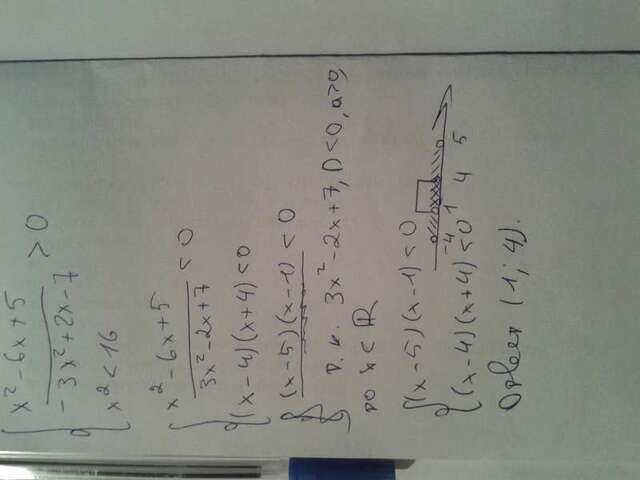 { x² - 6x + 5 / -3x² + 2x - 7 > 0
x² < 16
{ x² - 6x + 5 / 3x² - 2x + 7 < 0
(x - 4)(x + 4) < 0
{ (x - 5)(x - 1) < 0
т.к. 3x² - 2x + 7, D < 0, a > 0,
то x ∈ R
{ (x - 5)(x - 1) < 0
(x - 4)(x + 4) < 0
-4 1 4 5
Ответ (1; 4).